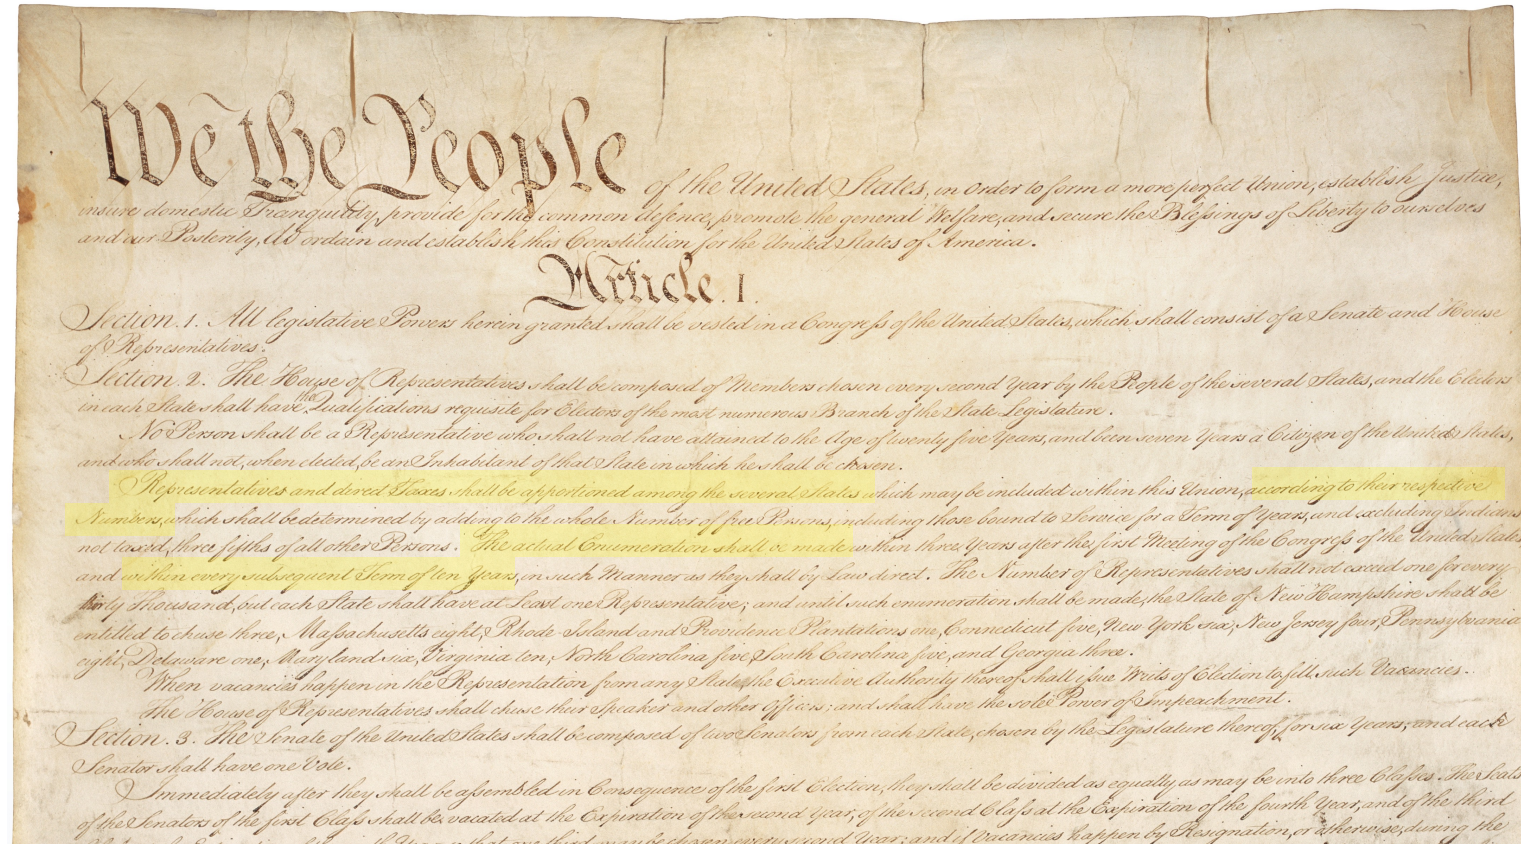 We the People of the United States, in Order to form a more perfect Union, establish Justice,
insure domestic Tranquility, provide for the common defence, promote the general Welfare, and secure the Blessings of Liberty to ourselves
and our Posterity, do ordain and establish this Constitution for the United States of America.
Article. I.
Section. 1. All legislative Powers herein granted shall be vested in a Congress of the United States, which shall consist of a Senate and House
of Representatives.
Section. 2. The House of Representatives shall be composed of Members chosen every second Year by the People of the several States, and the Electors
in each State shall have the Qualifications requisite for Electors of the most numerous Branch of the State Legislature.
No Person shall be a Representative who shall not have attained to the Age of twenty five Years, and been seven Years a Citizen of the United States,
and who shall not, when elected, be an Inhabitant of that State in which he shall be chosen.
Representatives and direct Taxes shall be apportioned among the several States which may be included within this Union, according to their respective
Numbers, which shall be determined by adding to the whole Number of free Persons, including those bound to Service for a Term of Years, and excluding Indians
not taxed, three fifths of all other Persons. The actual Enumeration shall be made within three Years after the first Meeting of the Congress of the United States,
and within every subsequent Term of ten Years, in such Manner as they shall by Law direct. The Number of Representatives shall not exceed one for every
thirty Thousand, but each State shall have at Least one Representative; and until such enumeration shall be made, the State of New Hampshire shall be
entitled to chuse three, Massachusetts eight, Rhode-Island and Providence Plantations one, Connecticut five, New-York six, New Jersey four, Pennsylvania
eight, Delaware one, Maryland six, Virginia ten, North Carolina five, South Carolina five, and Georgia three.
When vacancies happen in the Representation from any State, the Executive Authority thereof shall issue Writs of Election to fill such Vacancies.
The House of Representatives shall chuse their Speaker and other Officers; and shall have the sole Power of Impeachment.
Section. 3. The Senate of the United States shall be composed of two Senators from each State, chosen by the Legislature thereof, for six Years; and each
Senator shall have one Vote.
Immediately after they shall be assembled in Consequence of the first Election, they shall be divided as equally as may be into three Classes. The Seats
of the Senators of the first Class shall be vacated at the Expiration of the second Year, of the second Class at the Expiration of the fourth Year, and of the third
Year; and if Vacancies happen by Resignation, or otherwise, during the